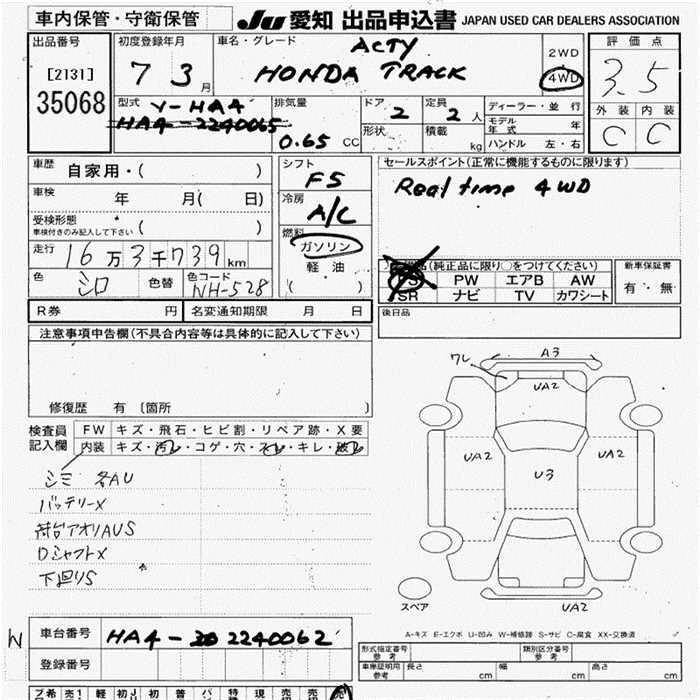 車内保管・守衛保管
JU 愛知 出品申込書 JAPAN USED CAR DEALERS ASSOCIATION
出品番号
[2131]
35068
初度登録年月
7 3 月
車名・グレード
ACTY
HONDA TRACK
2WD
4WD
評価点
3.5
外装 内装
C C
型式 V-HA4
HA4-2240065
排気量
0.65 CC
ドア 2
定員 2 人
形状
積載 kg
ディーラー・並行
モデル年式 年
ハンドル 左・右
車歴 自家用・( )
車検 年 月( 日)
受検形態
車検付きのみ記入して下さい ( )
走行 16万3千739km
色 シロ 色替 色コード NH-528
シフト
F5
冷房
A/C
燃料
ガソリン
軽油
( )
セールスポイント(正常に機能するものに限ります)
Real time 4WD
(純正品に限り○をつけてください)
PS PW エアB AW
SR ナビ TV カワシート
新車保証書
有・無
R券 円 名変通知期限 月 日
後日品
注意事項申告欄(不具合内容等は具体的に記入して下さい)
修復歴 有 〔箇所 〕
検査員記入欄
FW キズ・飛石・ヒビ割・リペア跡・X要
内装 キズ・汚れ・コゲ・穴・スレ・キレ・破れ
シミ 各AU
バッテリーX
荷台アオリAUS
DシャフトX
下廻りS
ワレ
A3
UA2
UA2
U3
UA2
UA2
スペア
A-キズ E-エクボ U-凹み W-補修跡 S-サビ C-腐食 XX-交換済
W
車台番号 HA4-2240062
登録番号
形式指定番号 参考
類別区分番号 参考
車庫証明用 参考 長さ cm 幅 cm 高さ cm